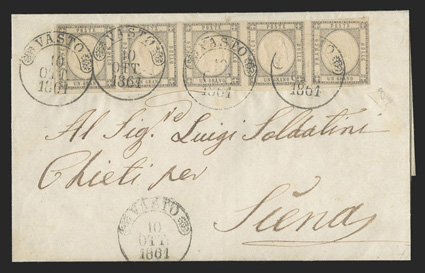 VASTO
10
OTT
1861
VASTO
10
OTT
1861
VASTO
1861
1861
POSTE
UN GRANO
UN GRANO
UN GRANO
UN GRANO
UN GRANO
Al Sig.re Luigi Soldatini
Chieti per
Siena
VASTO
10
OTT.
1861